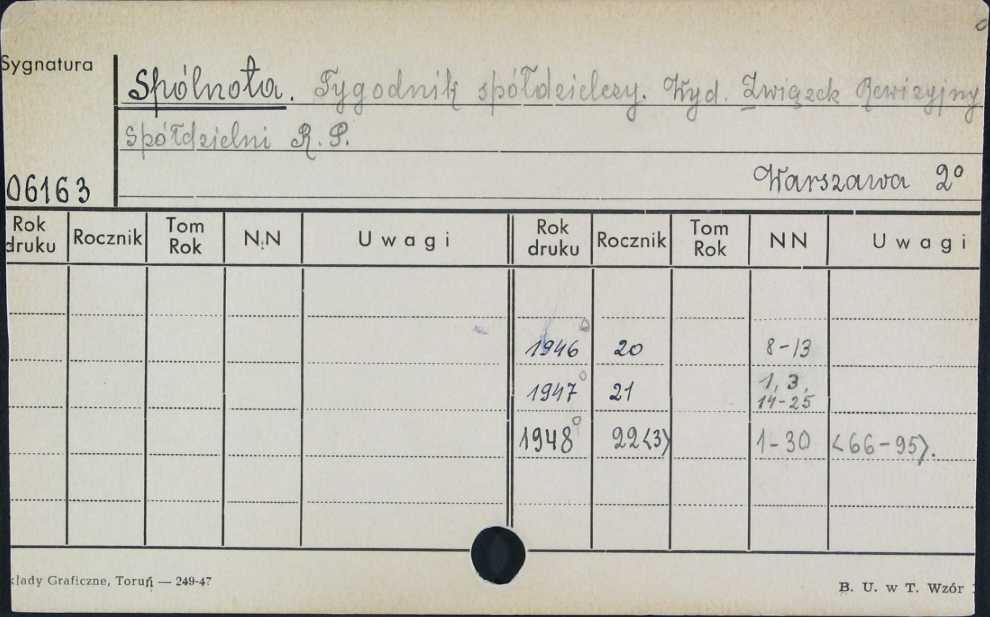 Sygnatura
Spólnota. Tygodnik spółdzielczy. Wyd. Związek Rewizyjny
Spółdzielni R. P.
06163
Warszawa 2°
Rok druku Rocznik Tom Rok N.N Uwagi Rok druku Rocznik Tom Rok NN Uwagi
1946° 20 8-13
1947° 21 1, 3, 14-25
1948° 22<3> 1-30 <66-95>.
kłady Graficzne, Toruń — 249-47
B. U. w T. Wzór